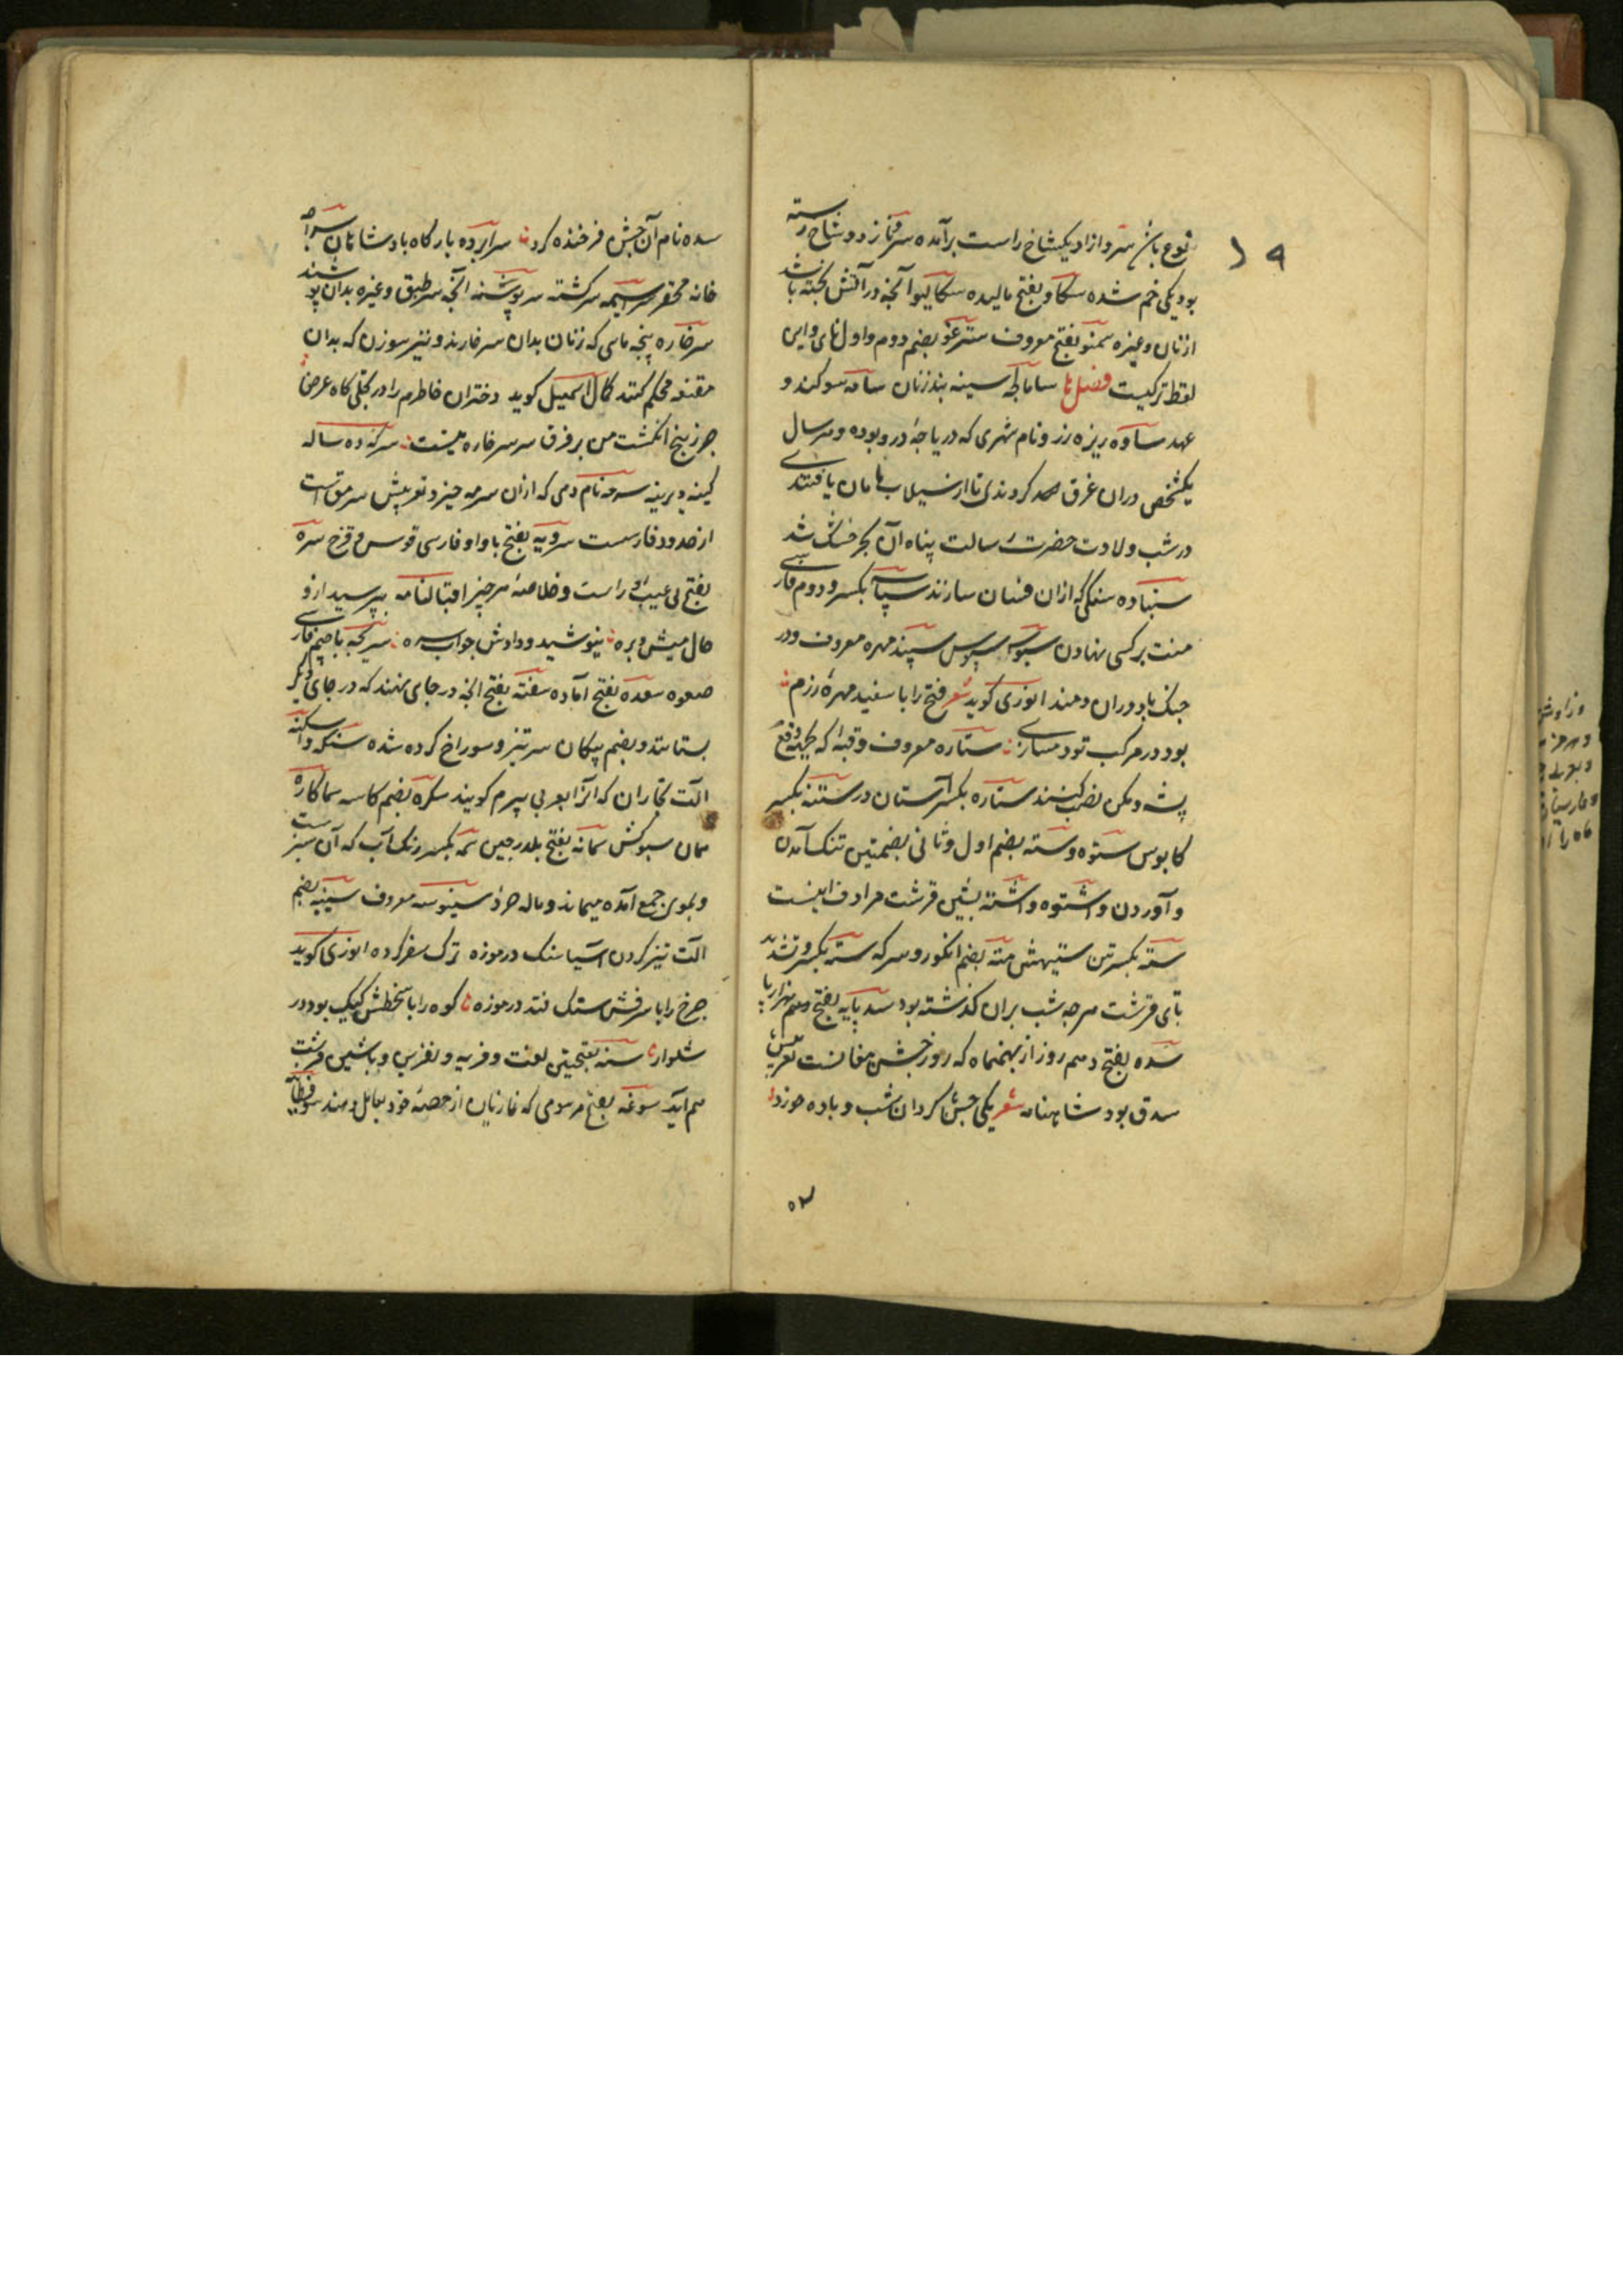 نوع باشد سرو ازاد یکشاخ راست برآمده سرو ناز دو شاخ رسته
بود یکی خم شده سکاو بفتح مالیده سکالیوا آنچه در آتش پخته باشد
از نان و غیره سمنو بفتح معروف ستر غو بضم دوم و اول نای و این
لفظ ترکیست فصل ها ساماکچه سینه بند زنان سامه سوکند و
عهد ساوه ریزه زر و نام شهری که دریاچهٔ درو بوده و هر سال
یکشخص دران غرق کردندی تا از سیلاب امان یافتندی
در شب ولادت حضرت رسالت پناه آن بحر خشک شد
سنباده سنکی که ازان فسان سازند سپاسه بکسر و دوم فارسی
منت بر کسی نهادن سبوسه سپوس سپند مهره معروف و در
جنک یاد دوران دمند انوری کوید شعر فتح را با سفید مهرهٔ رزم
بود در مرکب تو دمسازی ستاره معروف و قبه که بجهة دفع
پشه و مکس نصب کنند ستاره بکسر آستان در ستنه بکسر
کابوس ستوه و سته بضم اول و ثانی بضمتین تنک آمدن
و آوردن و اشتوه و اشته بشین قرشت مرادف اینست
سته بکسرتین ستیهش سته بضم انکور و سرکه سته بکسر و تشدید
تای قرشت هر چه شب بران کذشته بود سد پایه بفتح دهم هزار پا
سده بفتح دهم روز از بهمنماه که روز جشن مغانست تعریبش
سدق بود شاهنامه شعر یکی جشن کرد آن شب و باده خورد
۵۲
۱۹
سده نام آن جشن فرخنده کرد سراپرده بارکاه پادشاهان سراچه
خانه مختصر سرسیمه سرکشته سرپوشنه آنچه سر طبق و غیره بدان پوشند
سرخاره پنجه ماسی که زنان بدان سر خارند و نیز سوزن که بدان
مقنعه محکم کنند کمال اسمعیل کوید دختران خاطرم را در تجلی کاه عرض
جز ز پنج انکشت من بر فرق سر سرخاره نیست سرکه ده ساله
کینه دیرینه سرمه نام دهی که ازان سرمه خیزد تعریبش سرمق است
از حدود فارسست سرویه بفتح با واو فارسی قوس و قزح سره
بفتح بی عیب و راست و خلاصهٔ هر چیز اقبالنامه بپرسید ازو
حال میش و بره نیوشید و دادش جواب سره سریچه با جیم فارسی
صعوه سعده بفتح آماده سفته بفتح آنچه در جای نهند که در جای دیکر
بستانند و بضم پیکان سر تیز و سوراخ کرده شده سنکه و اسکنه
آلت نجاران که آنرا بعربی بیرم کویند سکره بضم کاسه سماکاره
سمان سبوکش سمانه بفتح بلدرجین سمه بکسر رنک آب که آن سبز است
و بموی جمع آمده میماند و ماله جولا سینوسه معروف سینبه بضم
آلت تیز کردن آسیا سنک در موزه ترک سفر کرده انوری کوید
چرخ را با سرفرش سنک فتد در موزه کوه را با سخطش کیک بود در
شلوار سنه بفتحتین لعنت و فریه و نفرین و با شین قرشت
هم آید سوغه بفتح مرسومی که غازیان از حصهٔ خود بعامل دهند سوفسطایه